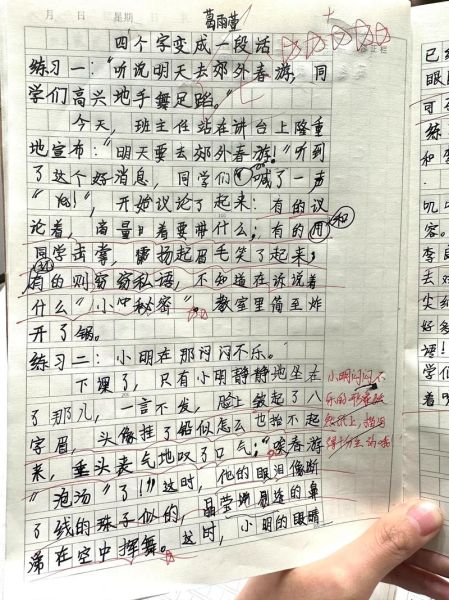 月 日 星期
葛雨萱
四个字变成一段话
练习一："听说明天去郊外春游，同
学们高兴地手舞足蹈。"
今天，班主任站在讲台上隆重
地宣布："明天要去郊外春游！"听到
了这个好消息，同学们喊了一声
"好！"，开始议论了起来：有的议
论着，商量着要带什么；有的和
同学击掌，扬起眉毛笑了起来；
有的则窃窃私语，不知道在诉说着
什么"小秘密"。教室里简直炸
开了锅。
练习二：小明在那闷闷不乐。
下课了，只有小明静静地坐在
了那儿，一言不发，脸上皱起了八
字眉，头像挂了铅似怎么也抬不起
来，垂头丧气地叹了口气："唉春游
"泡汤"了！"这时，他的眼泪像断
了线的珠子似的，晶莹剔透的鼻
涕在空中挥舞。这时，小明的眼睛
小明闷闷不
乐的形象跃
然纸上，描写
得十分生动
已经
眼
可
练
和
叽
容。
李
去
尖
好多
学们
着